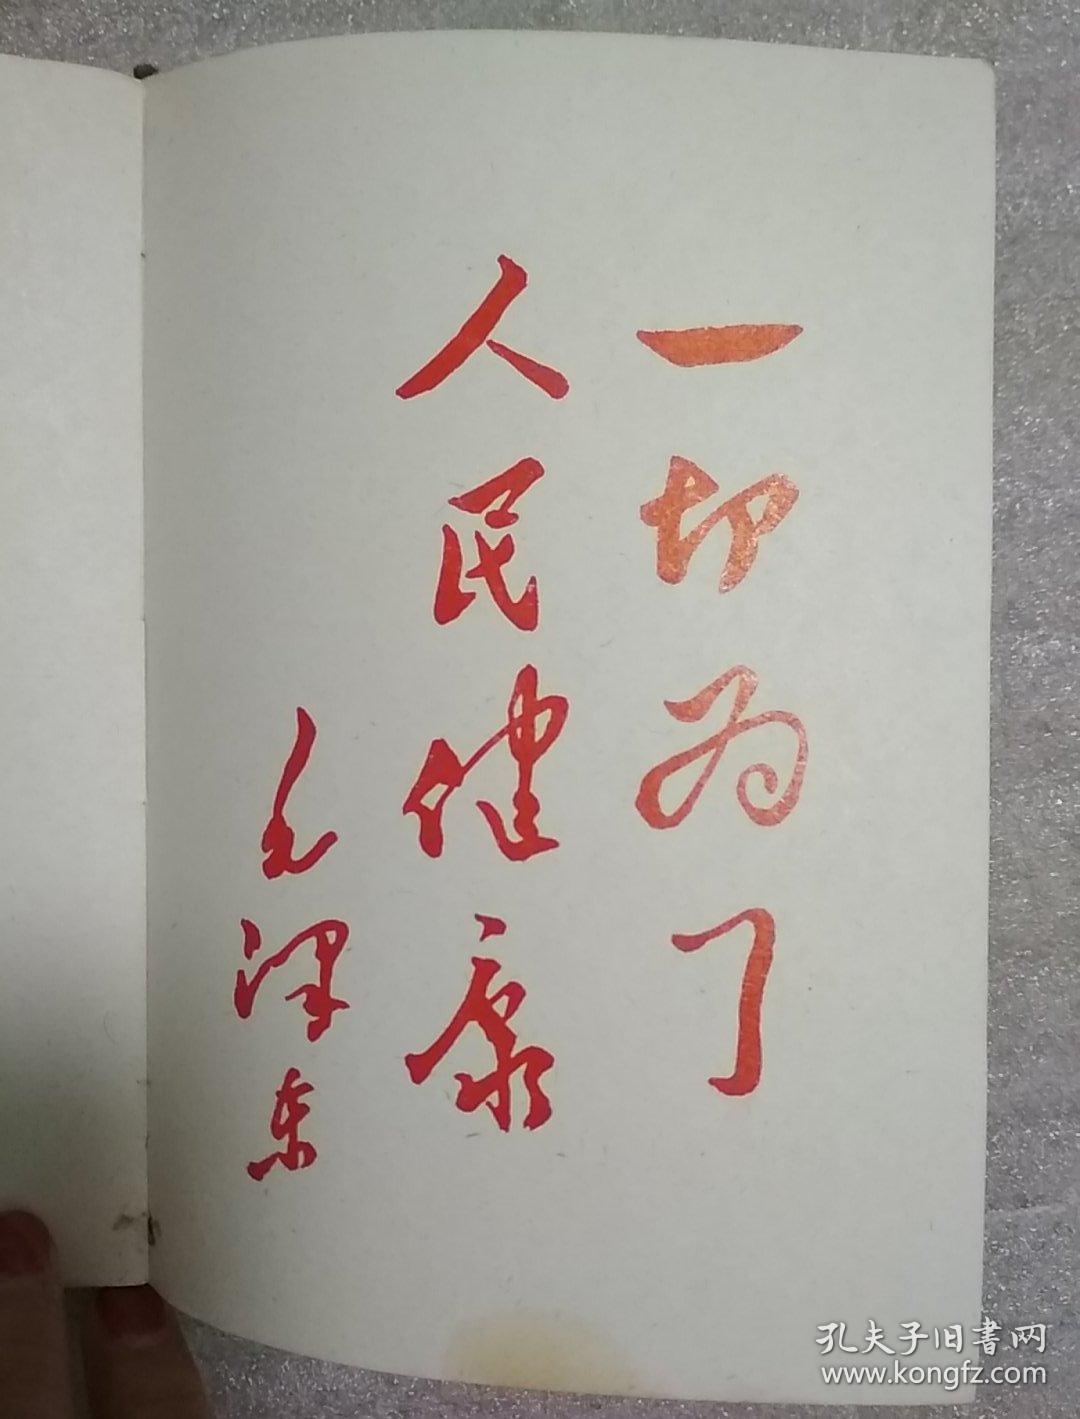 一切为了
人民健康
毛泽东
孔夫子旧書网
www.kongfz.com